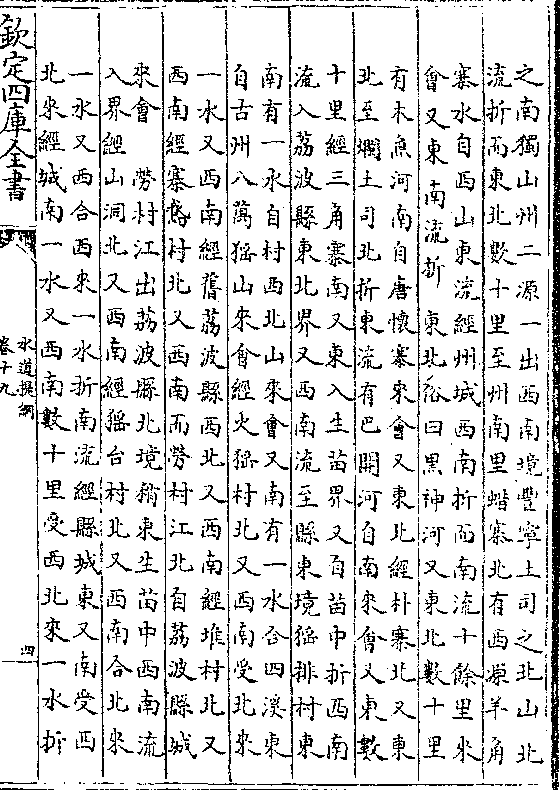 之南獨山州二源一出西南境豐寧土司之北山北
流折而東北數十里至州南里蜡寨北有西源羊角
寨水自西山東流經州城西南折而南流十餘里來
會又東南流折東北俗曰黑神河又東北數十里
有木魚河南自唐懷寨來會又東北經朴寨北又東
北至爛土司北折東流有巴開河自南來會又東數
十里經三角寨南又東入生苗界又自苗中折西南
流入荔波縣東北界又西南流至縣東境猺排村東
南有一水自村西北山來會又南有一水合四溪東
自古州八萬猺山來會經火猺村北又西南受北來
一水又西南經舊荔波縣西北又西南經堆村北又
西南經寨村北又西南而勞村江北自荔波縣城
來會 勞村江出荔波縣北境稍東生苗中西南流
入界經山洞北又西南經猺台村北又西南合北來
一水又西合西來一水折南流經縣城東又南受西
北來經城南一水又西南數十里受西北來一水折
欽定四庫全書
水道提綱
卷十九
四